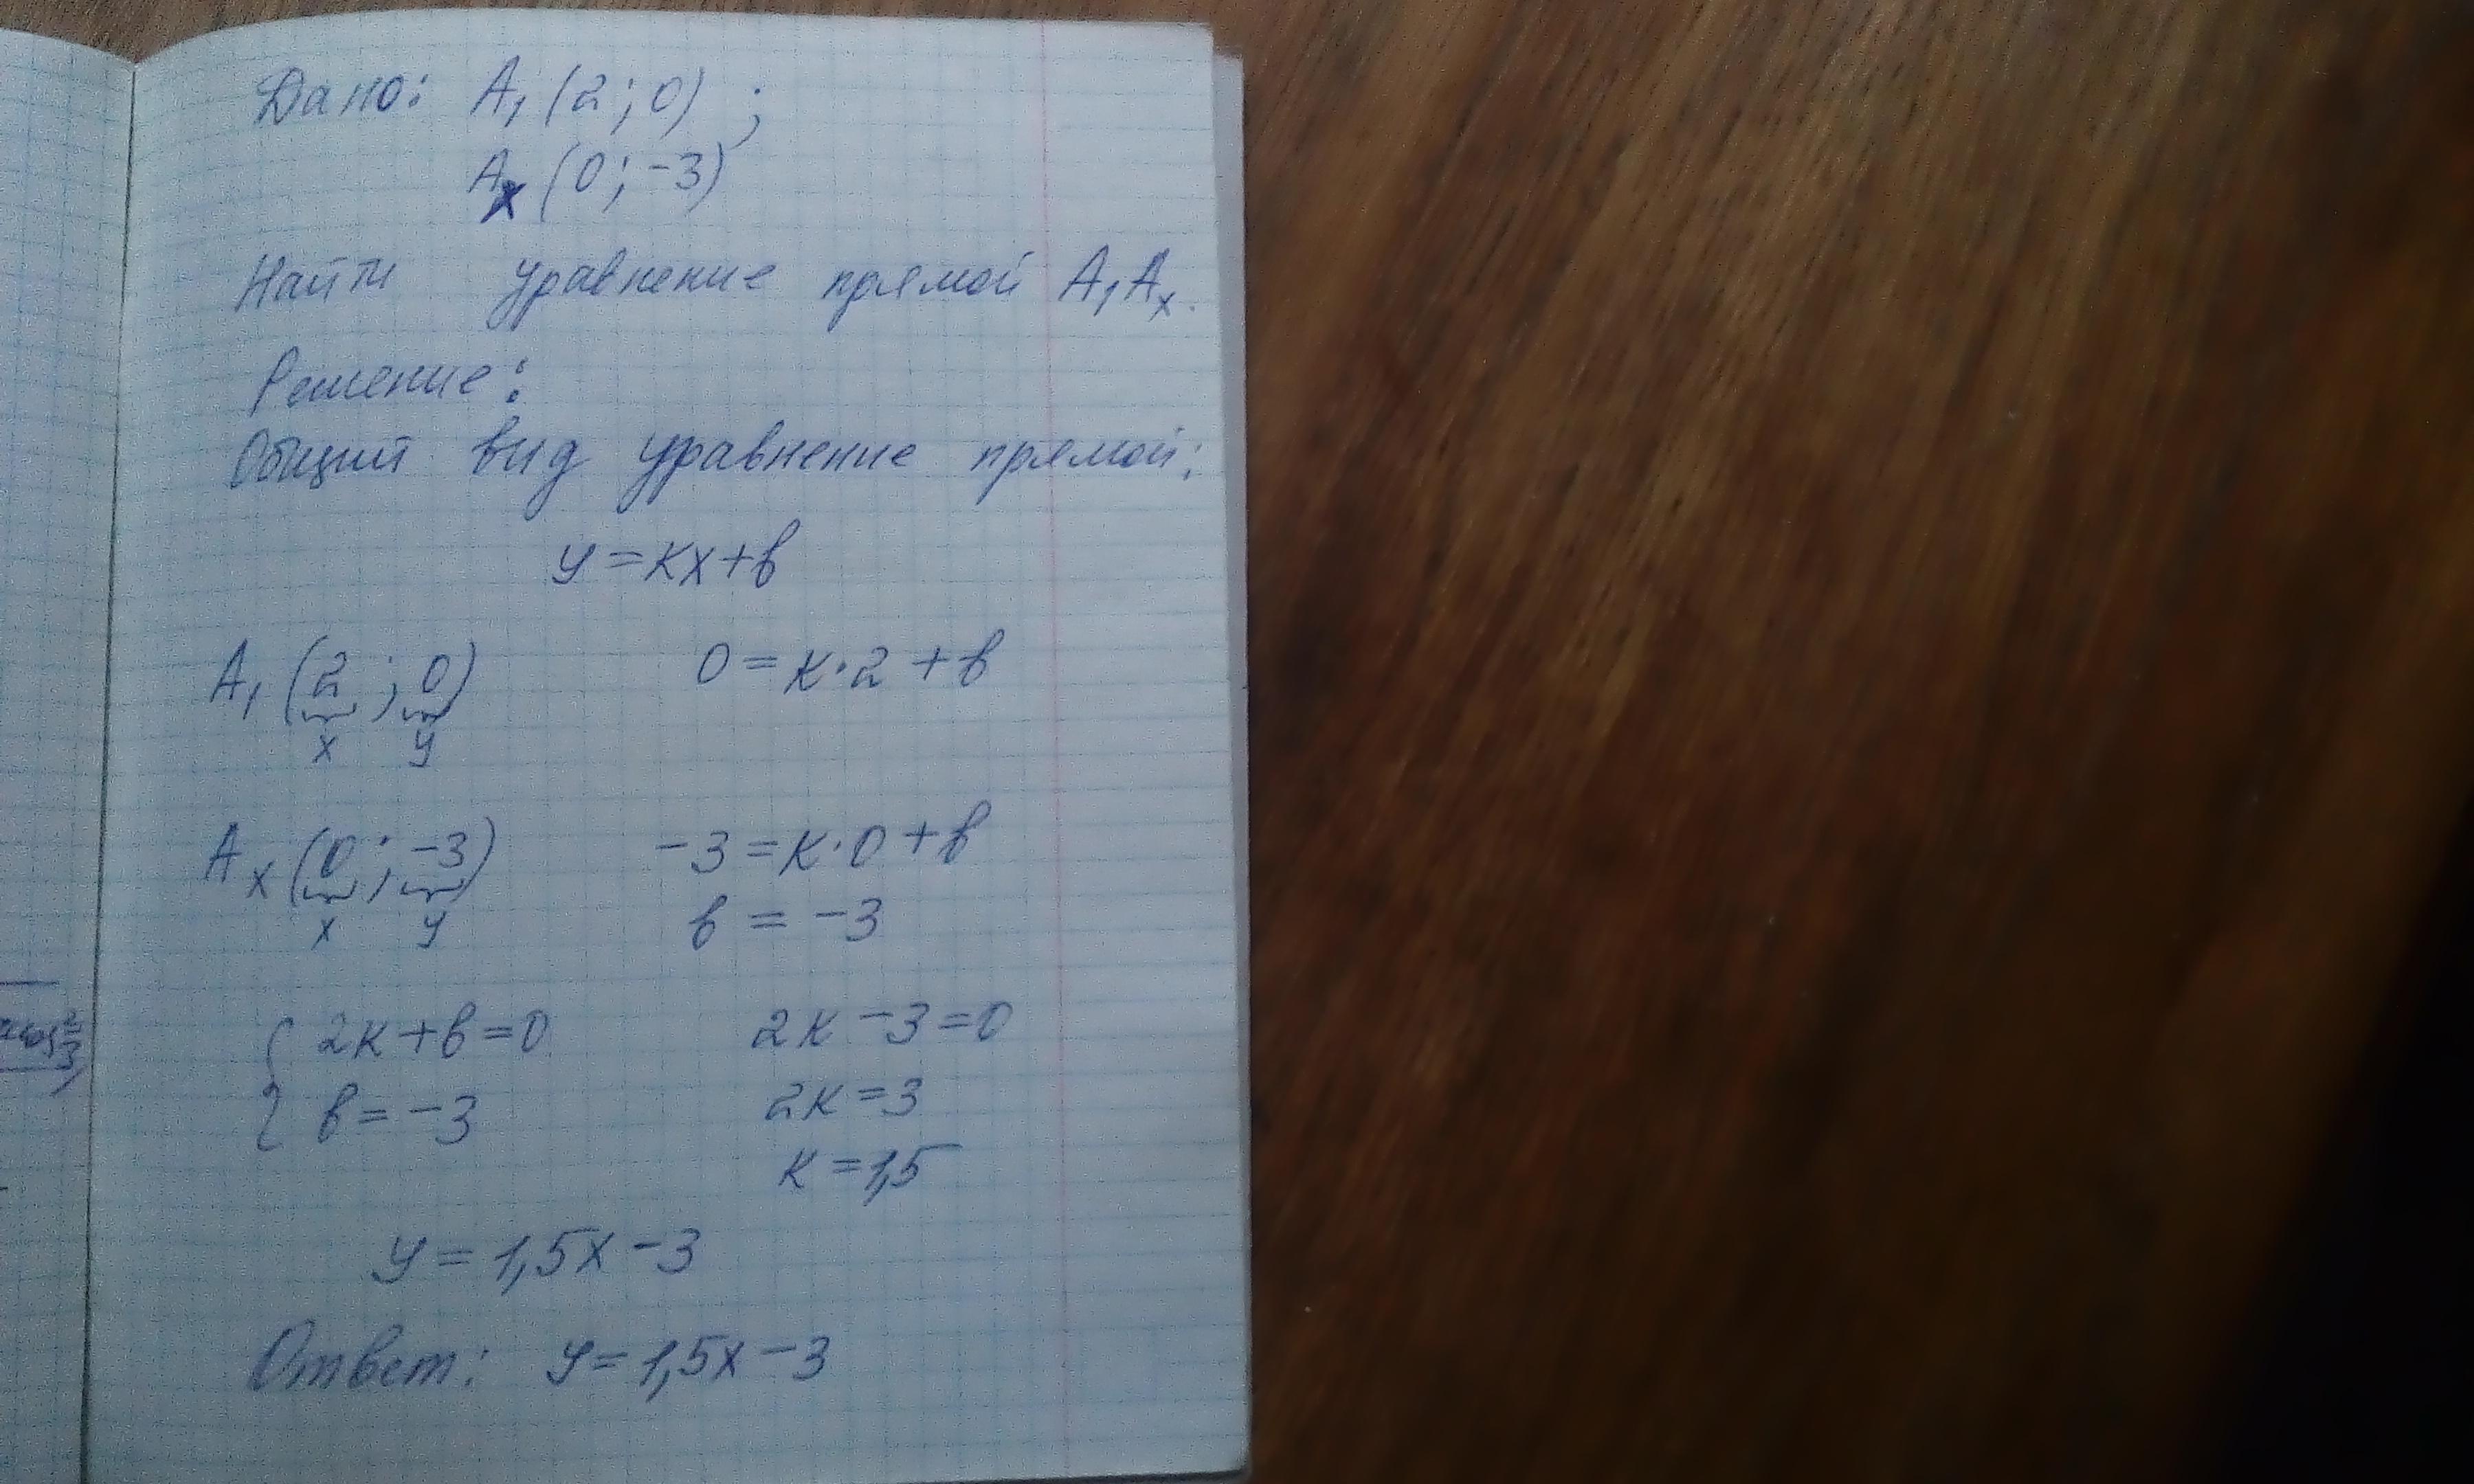 Дано: A₁ (2 ; 0) ;
Aₓ (0 ; -3)
Найти уравнение прямой A₁Aₓ.
Решение:
Общий вид уравнение прямой:
y = kx + b
A₁ (2 ; 0) 0 = k·2 + b
x y
Aₓ (0 ; -3) -3 = k·0 + b
x y b = -3
{ 2k + b = 0 2k - 3 = 0
b = -3 2k = 3
k = 1,5
y = 1,5x - 3
Ответ: y = 1,5x - 3